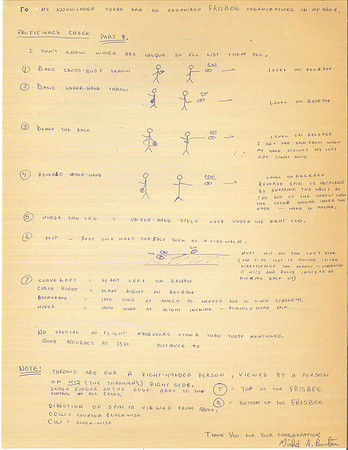 TO MY KNOWLEDGE THERE ARE NO ORGANIZED FRISBEE ORGANIZATIONS IN MY AREA.
PROFICIENCY CHECK PART 8.
I DON'T KNOW WHICH ARE UNIQUE SO I'LL LIST THEM ALL.
① BASIC CROSS-BODY THROW CW LEVEL ON RELEASE
② BASIC UNDER-HAND THROW LEVEL ON RELEASE
③ BEHIND THE BACK CW LEVEL ON RELEASE
I GET THE SPIN FROM WHEN
MY HAND STRIKES MY LEFT
SIDE
④ REVERSE UNDER-HAND LEVEL ON RELEASE
REVERSE SPIN IS OBTAINED
BY SNAPPING THE WRIST AT
THE END OF THE THROW WITH
THE THUMB MOVING
⑤ UNDER THE LEG = UNDER-HAND STYLE USED UNDER THE RIGHT LEG.
⑥ SKIP - HARD SURFACE SUCH AS A SIDEWALK.
MUST HIT ON THE LEFT SIDE
(THE SIDE THAT IS MOVING INTO
IT HITS AND ROLLS INSTEAD OF
KICKING BACK UP)
⑦ CURVE LEFT = SLANT LEFT ON RELEASE
CURVE RIGHT = SLANT RIGHT ON RELEASE
BOOMERANG = INTO WIND AT ANGLE AS NEEDED DUE TO WIND STRENGTH.
HOVER = INTO WIND AT SLIGHT INCLINE - SLIGHTLY MORE SPIN.
NO SPECIAL IN FLIGHT MANEUVERS OTHER THAN THOSE MENTIONED.
GOOD ACCURACY AT 75FT DISTANCE TO
NOTE: THROWS ARE FOR A RIGHT-HANDED PERSON, VIEWED BY A PERSON
ON HIS (THE THROWER'S) RIGHT SIDE.
INDEX FINGER ON THE EDGE ADDS TO THE T = TOP OF THE FRISBEE
CONTROL IN ALL CASES.
DIRECTION OF SPIN IS VIEWED FROM ABOVE. B = BOTTOM OF THE FRISBEE
CCW = COUNTER CLOCK-WISE
CW = CLOCK-WISE
THANK YOU FOR YOUR CONSIDERATION,